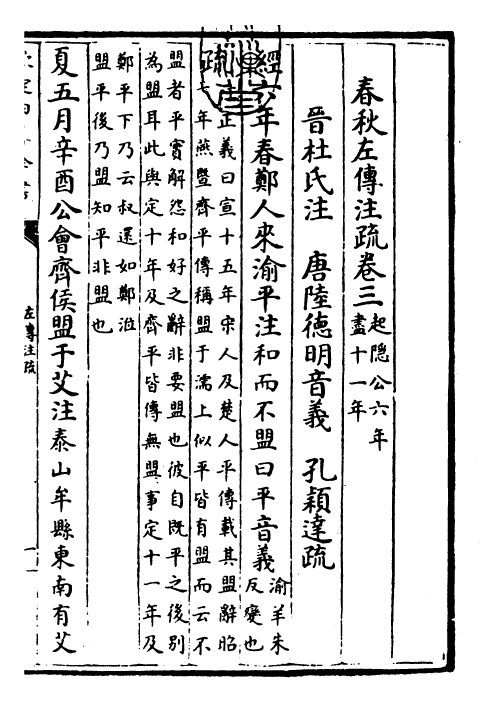 春秋左傳注疏卷三
起隱公六年
盡十一年
晉杜氏注　唐陸德明音義　孔穎達疏
經六年春鄭人來渝平注和而不盟曰平音義
渝羊朱
反變也
疏
正義曰宣十五年宋人及楚人平傳載其盟辭昭
七年燕暨齊平傳稱盟于濡上似平皆有盟而云不
盟者平實解怨和好之辭非要盟也彼自既平之後別
為盟耳此與定十年及齊平皆傳無盟事定十一年及
鄭平下乃云叔還如鄭涖
盟平後乃盟知平非盟也
夏五月辛酉公會齊侯盟于艾注泰山牟縣東南有艾
左傳注疏
一